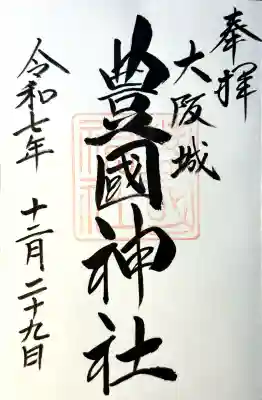 奉拝
大阪城
豊國神社
令和七年 十二月二十九日